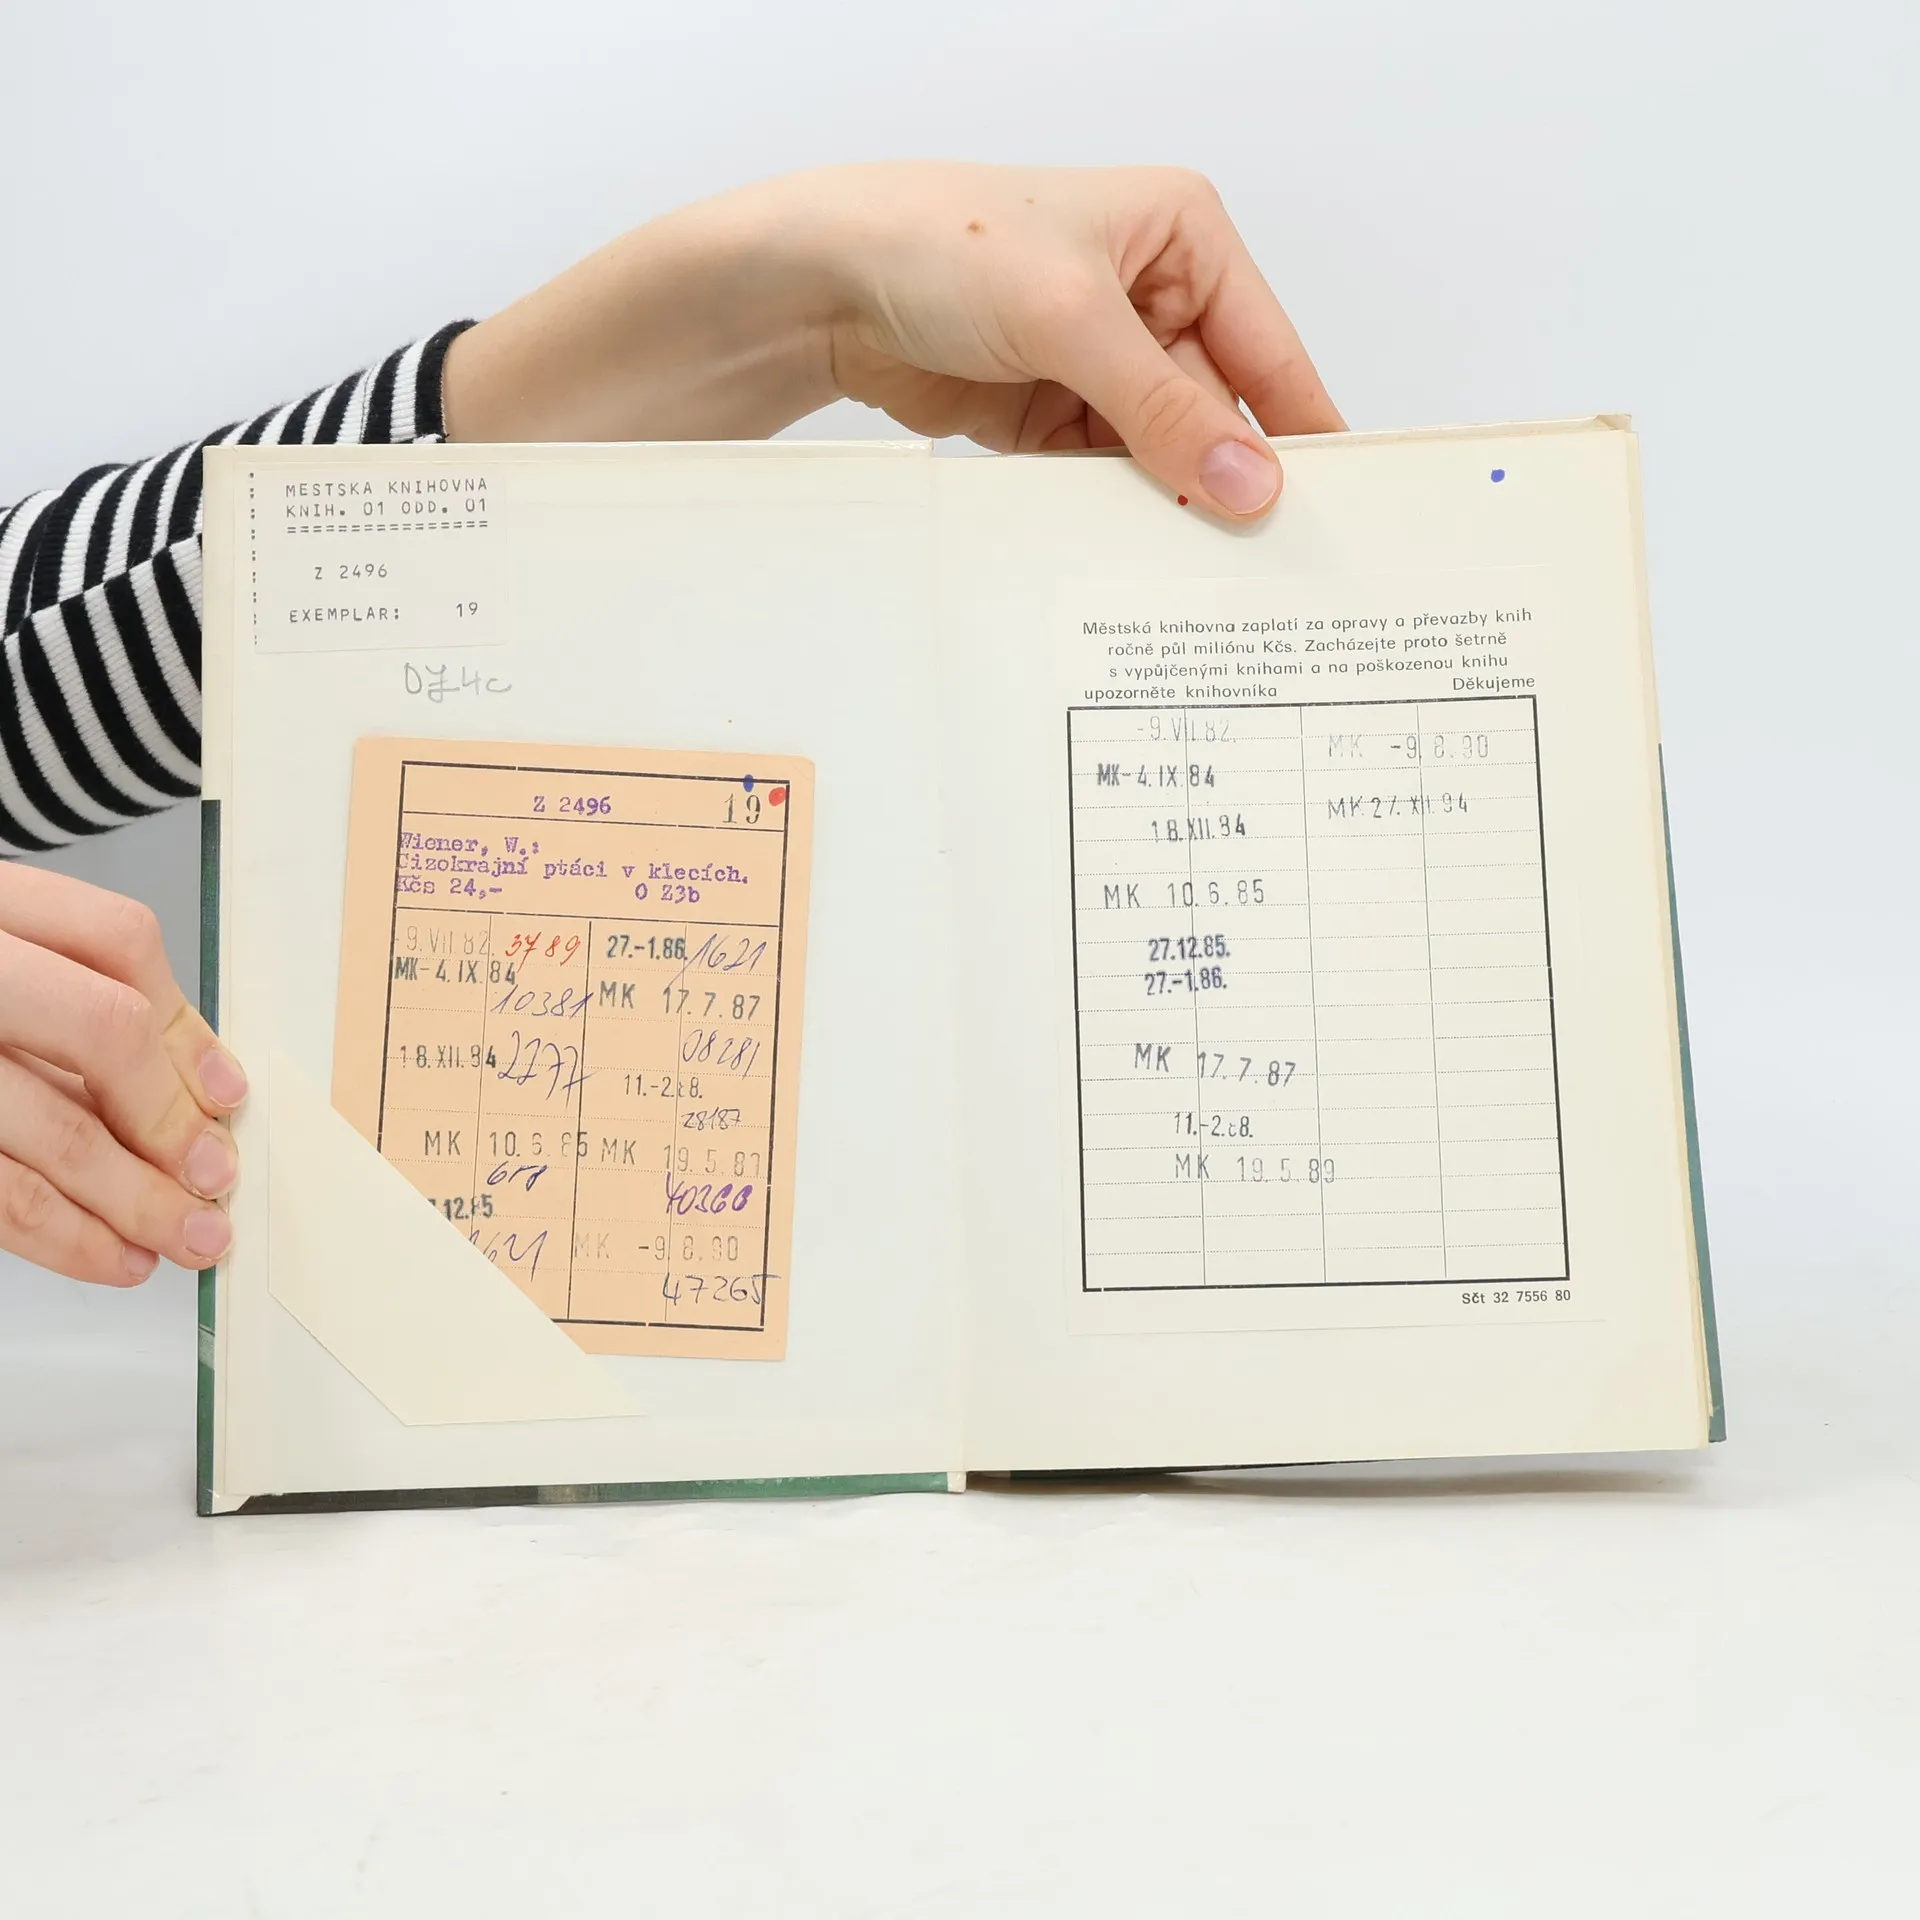 MESTSKA KNIHOVNA
KNIH. 01 ODD. 01
================
Z 2496
EXEMPLAR: 19
Z 2496 19
Wiener, W.:
Cizokrajní ptáci v klecích.
Kčs 24,- O Z3b
-9. VII. 82. 3789
MK-4. IX. 84
10381
18. XII. 84 2277
MK 10. 6. 85
658
.12.85
1621
27.-1.86. 1621
MK 17. 7. 87
08281
11.-2.88.
28187
MK 19. 5. 89
40366
MK -9. 8. 90
47265
Městská knihovna zaplatí za opravy a převazby knih
ročně půl miliónu Kčs. Zacházejte proto šetrně
s vypůjčenými knihami a na poškozenou knihu
upozorněte knihovníka Děkujeme
-9. VII. 82.
MK-4. IX. 84
18. XII. 84
MK 10. 6. 85
27.12.85.
27.-1.86.
MK 17. 7. 87
11.-2.88.
MK 19. 5. 89
MK -9. 8. 90
MK 27. XII. 94
Sčt 32 7556 80